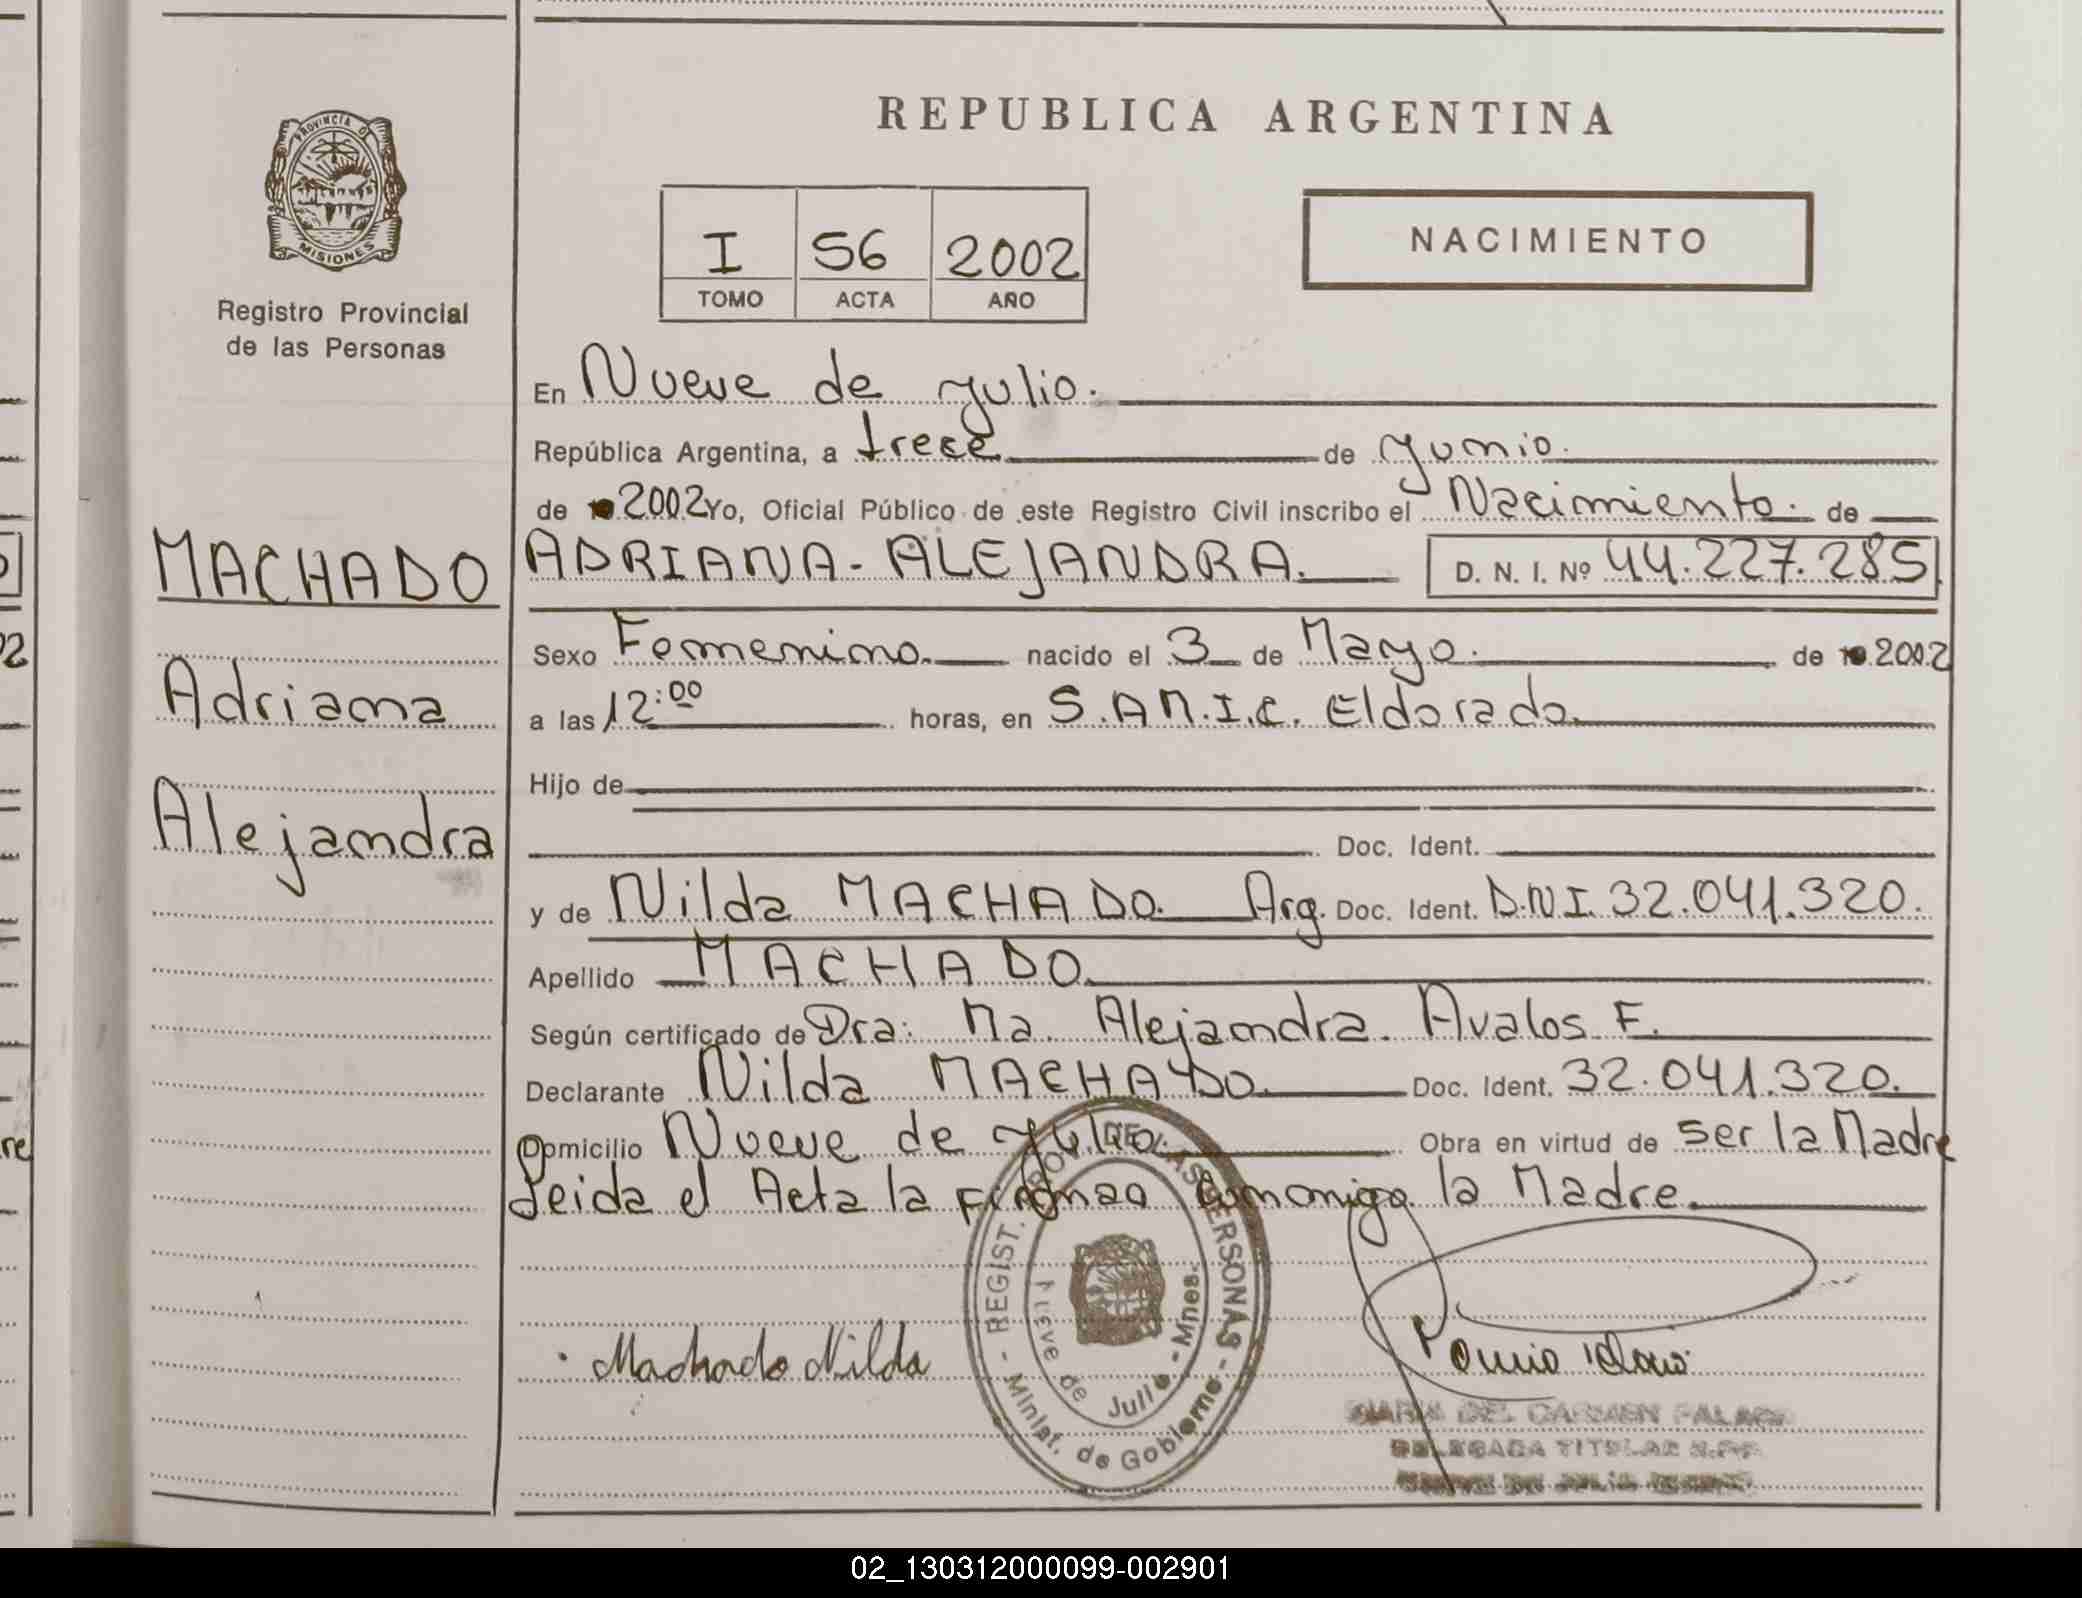 REPUBLICA ARGENTINA
PROVINCIA D
MISIONES
Registro Provincial
de las Personas
I 56 2002
TOMO ACTA AÑO
NACIMIENTO
En Nueve de Julio.
República Argentina, a trece de Junio.
de 2002 Yo, Oficial Público de este Registro Civil inscribo el Nacimiento. de
MACHADO
Adriana
Alejandra
ADRIANA - ALEJANDRA. D. N. I. Nº 44.227.285
Sexo Femenino. nacido el 3 de Mayo. de 2002
a las 12:00 horas, en S.AM.I.C. Eldorado.
Hijo de
Doc. Ident.
y de Nilda MACHADO. Arg. Doc. Ident. D.N.I. 32.041.320.
Apellido MACHADO.
Según certificado de Dra: Ma. Alejandra. Avalos F.
Declarante Nilda MACHADO. Doc. Ident. 32.041.320.
Domicilio Nueve de Julio. Obra en virtud de ser la Madre
Leida el Acta la firman la Madre.
REGIST. PROV. DE LAS PERSONAS - Minist. de Gobierno -
Nueve de Julio - Mnes.
Machado Nilda
MARIA DEL CARMEN
DELEGADA TITULAR
02
re
02_130312000099-002901